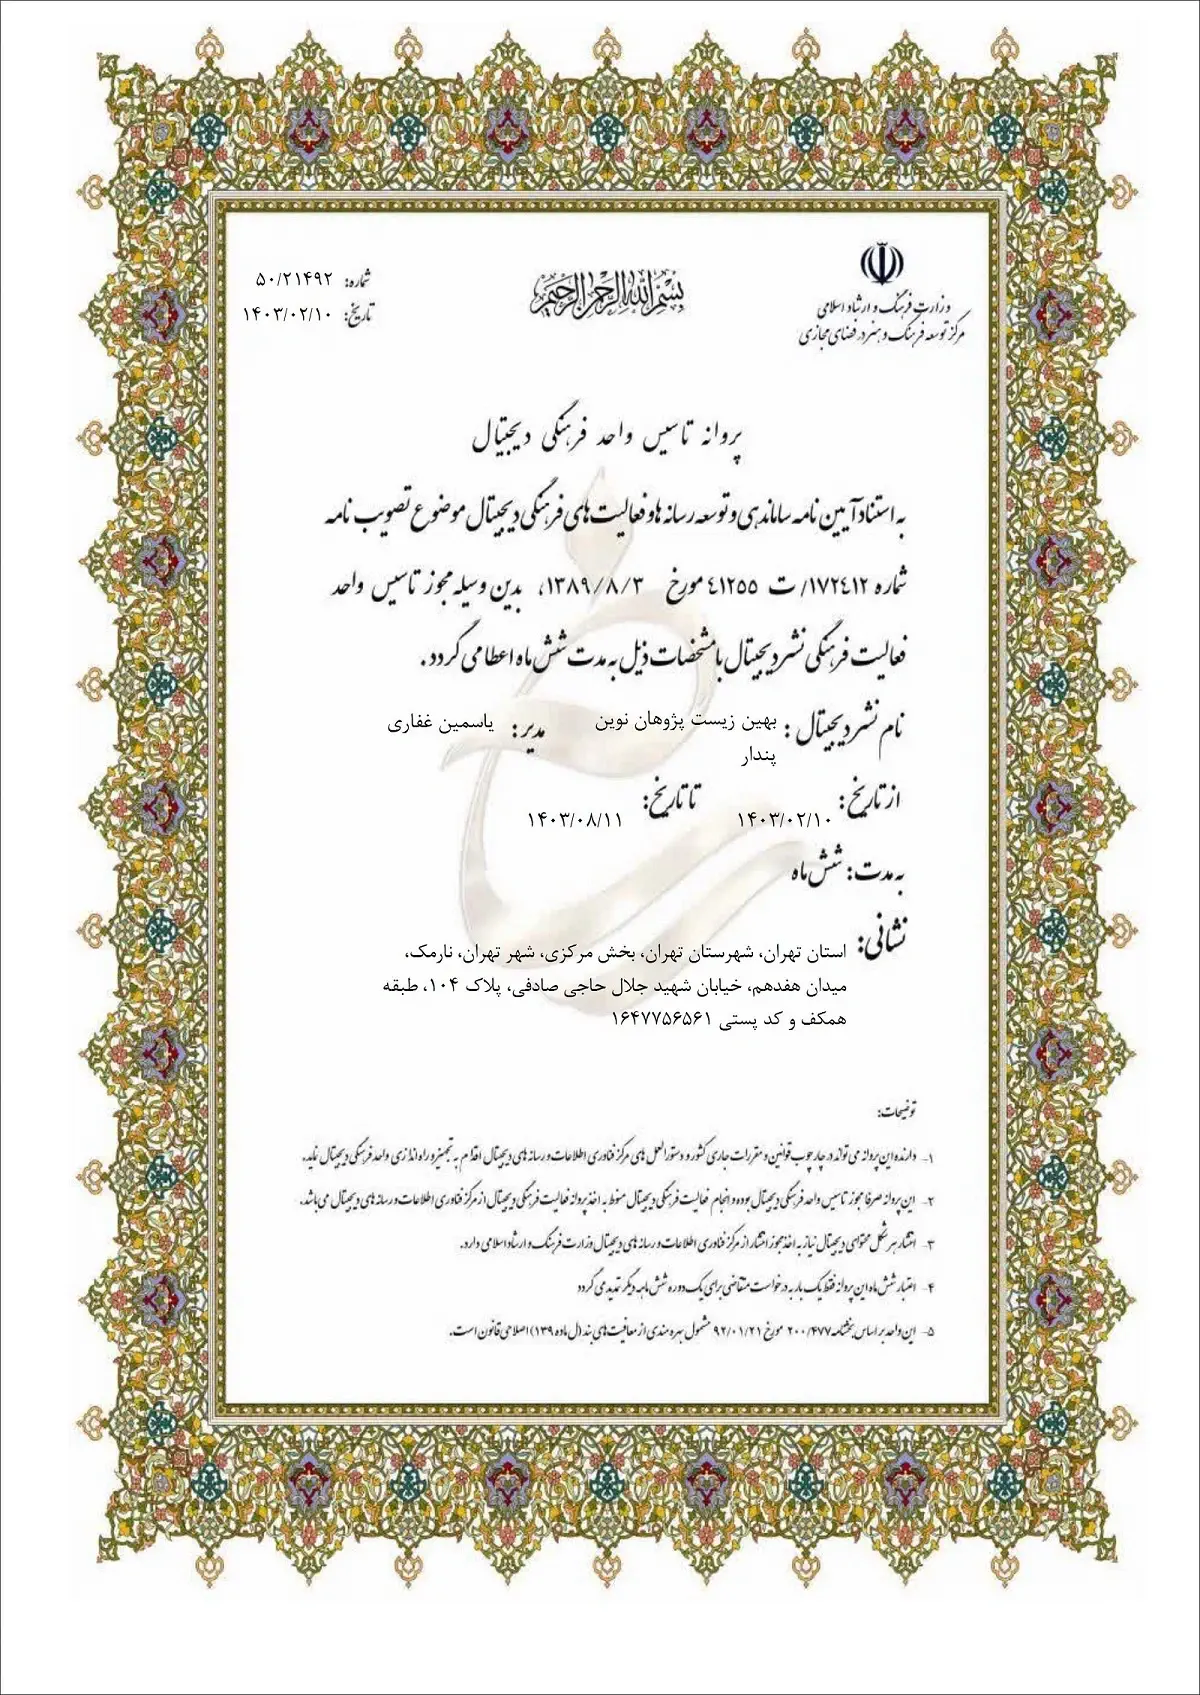 بسم الله الرحمن الرحیم
وزارت فرهنگ و ارشاد اسلامی
مرکز توسعه فرهنگ و هنر در فضای مجازی
شماره: ۵۰/۲۱۴۹۲
تاریخ: ۱۴۰۳/۰۲/۱۰
پروانه تاسیس واحد فرهنگی دیجیتال
به استناد آیین نامه ساماندهی و توسعه رسانه ها و فعالیت های فرهنگی دیجیتال موضوع تصویب نامه
شماره ۱۷۲٤۱۲/ ت ٤۱۲۵۵ مورخ ۱۳۸۹/۸/۳، بدین وسیله مجوز تاسیس واحد
فعالیت فرهنگی نشر دیجیتال با مشخصات ذیل به مدت شش ماه اعطا می گردد .
نام نشر دیجیتال : بهین زیست پژوهان نوین پندار مدیر : یاسمین غفاری
از تاریخ : ۱۴۰۳/۰۲/۱۰ تا تاریخ: ۱۴۰۳/۰۸/۱۱
به مدت : شش ماه
نشانی: استان تهران، شهرستان تهران، بخش مرکزی، شهر تهران، نارمک،
میدان هفدهم، خیابان شهید جلال حاجی صادقی، پلاک ۱۰۴، طبقه
همکف و کد پستی ۱۶۴۷۷۵۶۵۶۱
توضیحات:
۱- دارنده این پروانه می تواند در چارچوب قوانین و مقررات جاری کشور و دستورالعمل های مرکز فناوری اطلاعات و رسانه های دیجیتال اقدام به تجهیز و راه اندازی واحد فرهنگی دیجیتال نماید.
۲- این پروانه صرفا مجوز تاسیس واحد فرهنگی دیجیتال بوده و انجام فعالیت فرهنگی دیجیتال منوط به اخذ پروانه فعالیت فرهنگی دیجیتال از مرکز فناوری اطلاعات و رسانه های دیجیتال می باشد.
۳- انتشار هر شکل محتوای دیجیتال نیاز به اخذ مجوز انتشار از مرکز فناوری اطلاعات و رسانه های دیجیتال وزارت فرهنگ و ارشاد اسلامی دارد.
۴- اعتبار شش ماه این پروانه فقط یک بار به درخواست متقاضی برای یک دوره شش ماهه دیگر تمدید می گردد
۵- این واحد بر اساس بخشنامه ۲۰۰/۴۷۷ مورخ ۹۲/۰۱/۲۱ مشمول بهره مندی از معافیت های بند (ل ماده ۱۳۹) اصلاحی قانون است.